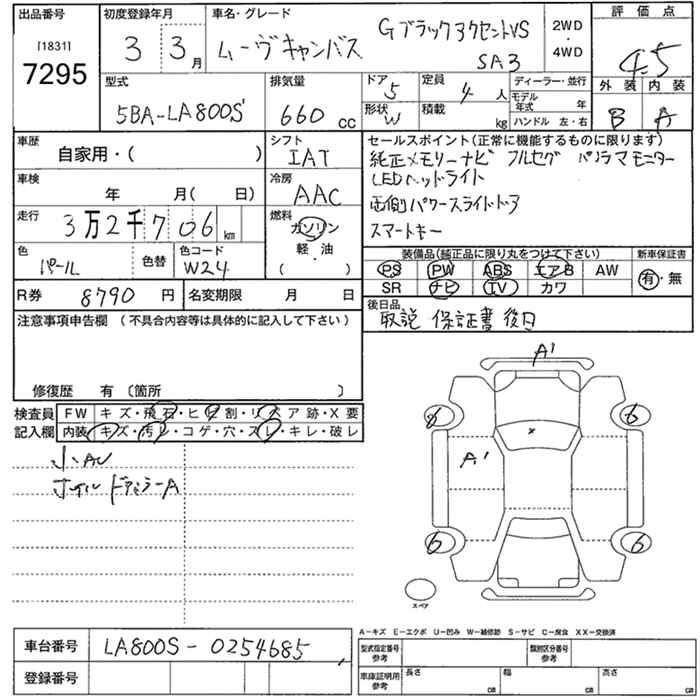 出品番号
[1831]
7295
初度登録年月
3 3月
車名・グレード
ムーヴキャンバス
Gブラックアクセント VS
SA3
2WD
・
4WD
評価点
4.5
外装 内装
B A
型式
5BA-LA800S
排気量
660 cc
ドア 5
定員 4 人
形状 W
積載 kg
ディーラー・並行
モデル年式 年
ハンドル 左・右
車歴
自家用・( )
シフト
IAT
車検
年 月( 日)
冷房
AAC
走行
3万2千706 km
燃料
ガソリン
軽・油
( )
色
パール
色替
色コード
W24
R券 8790 円
名変期限 月 日
セールスポイント(正常に機能するものに限ります)
純正メモリーナビ フルセグ パノラマモニター
LEDヘッドライト
両側パワースライドドア
スマートキー
装備品(純正品に限り丸をつけて下さい)
PS PW ABS エアB AW
SR ナビ TV カワ
新車保証書
有・無
後日品
取説 保証書 後日
注意事項申告欄 (不具合内容等は具体的に記入して下さい)
修復歴 有 〔箇所 〕
検査員記入欄
FW キズ・飛石・ヒビ割・リペア跡・X要
内装 キズ・汚レ・コゲ・穴・スレ・キレ・破レ
小AU
ホイル ドアミラーA
A1
6
6
x
A1
6
6
スペア
A-キズ E-エクボ U-凹み W-補修跡 S-サビ C-腐食 XX-交換済
車台番号 LA800S-0254685
登録番号
型式指定番号
参考
類別区分番号
参考
車庫証明用
参考
長さ cm
幅 cm
高さ cm